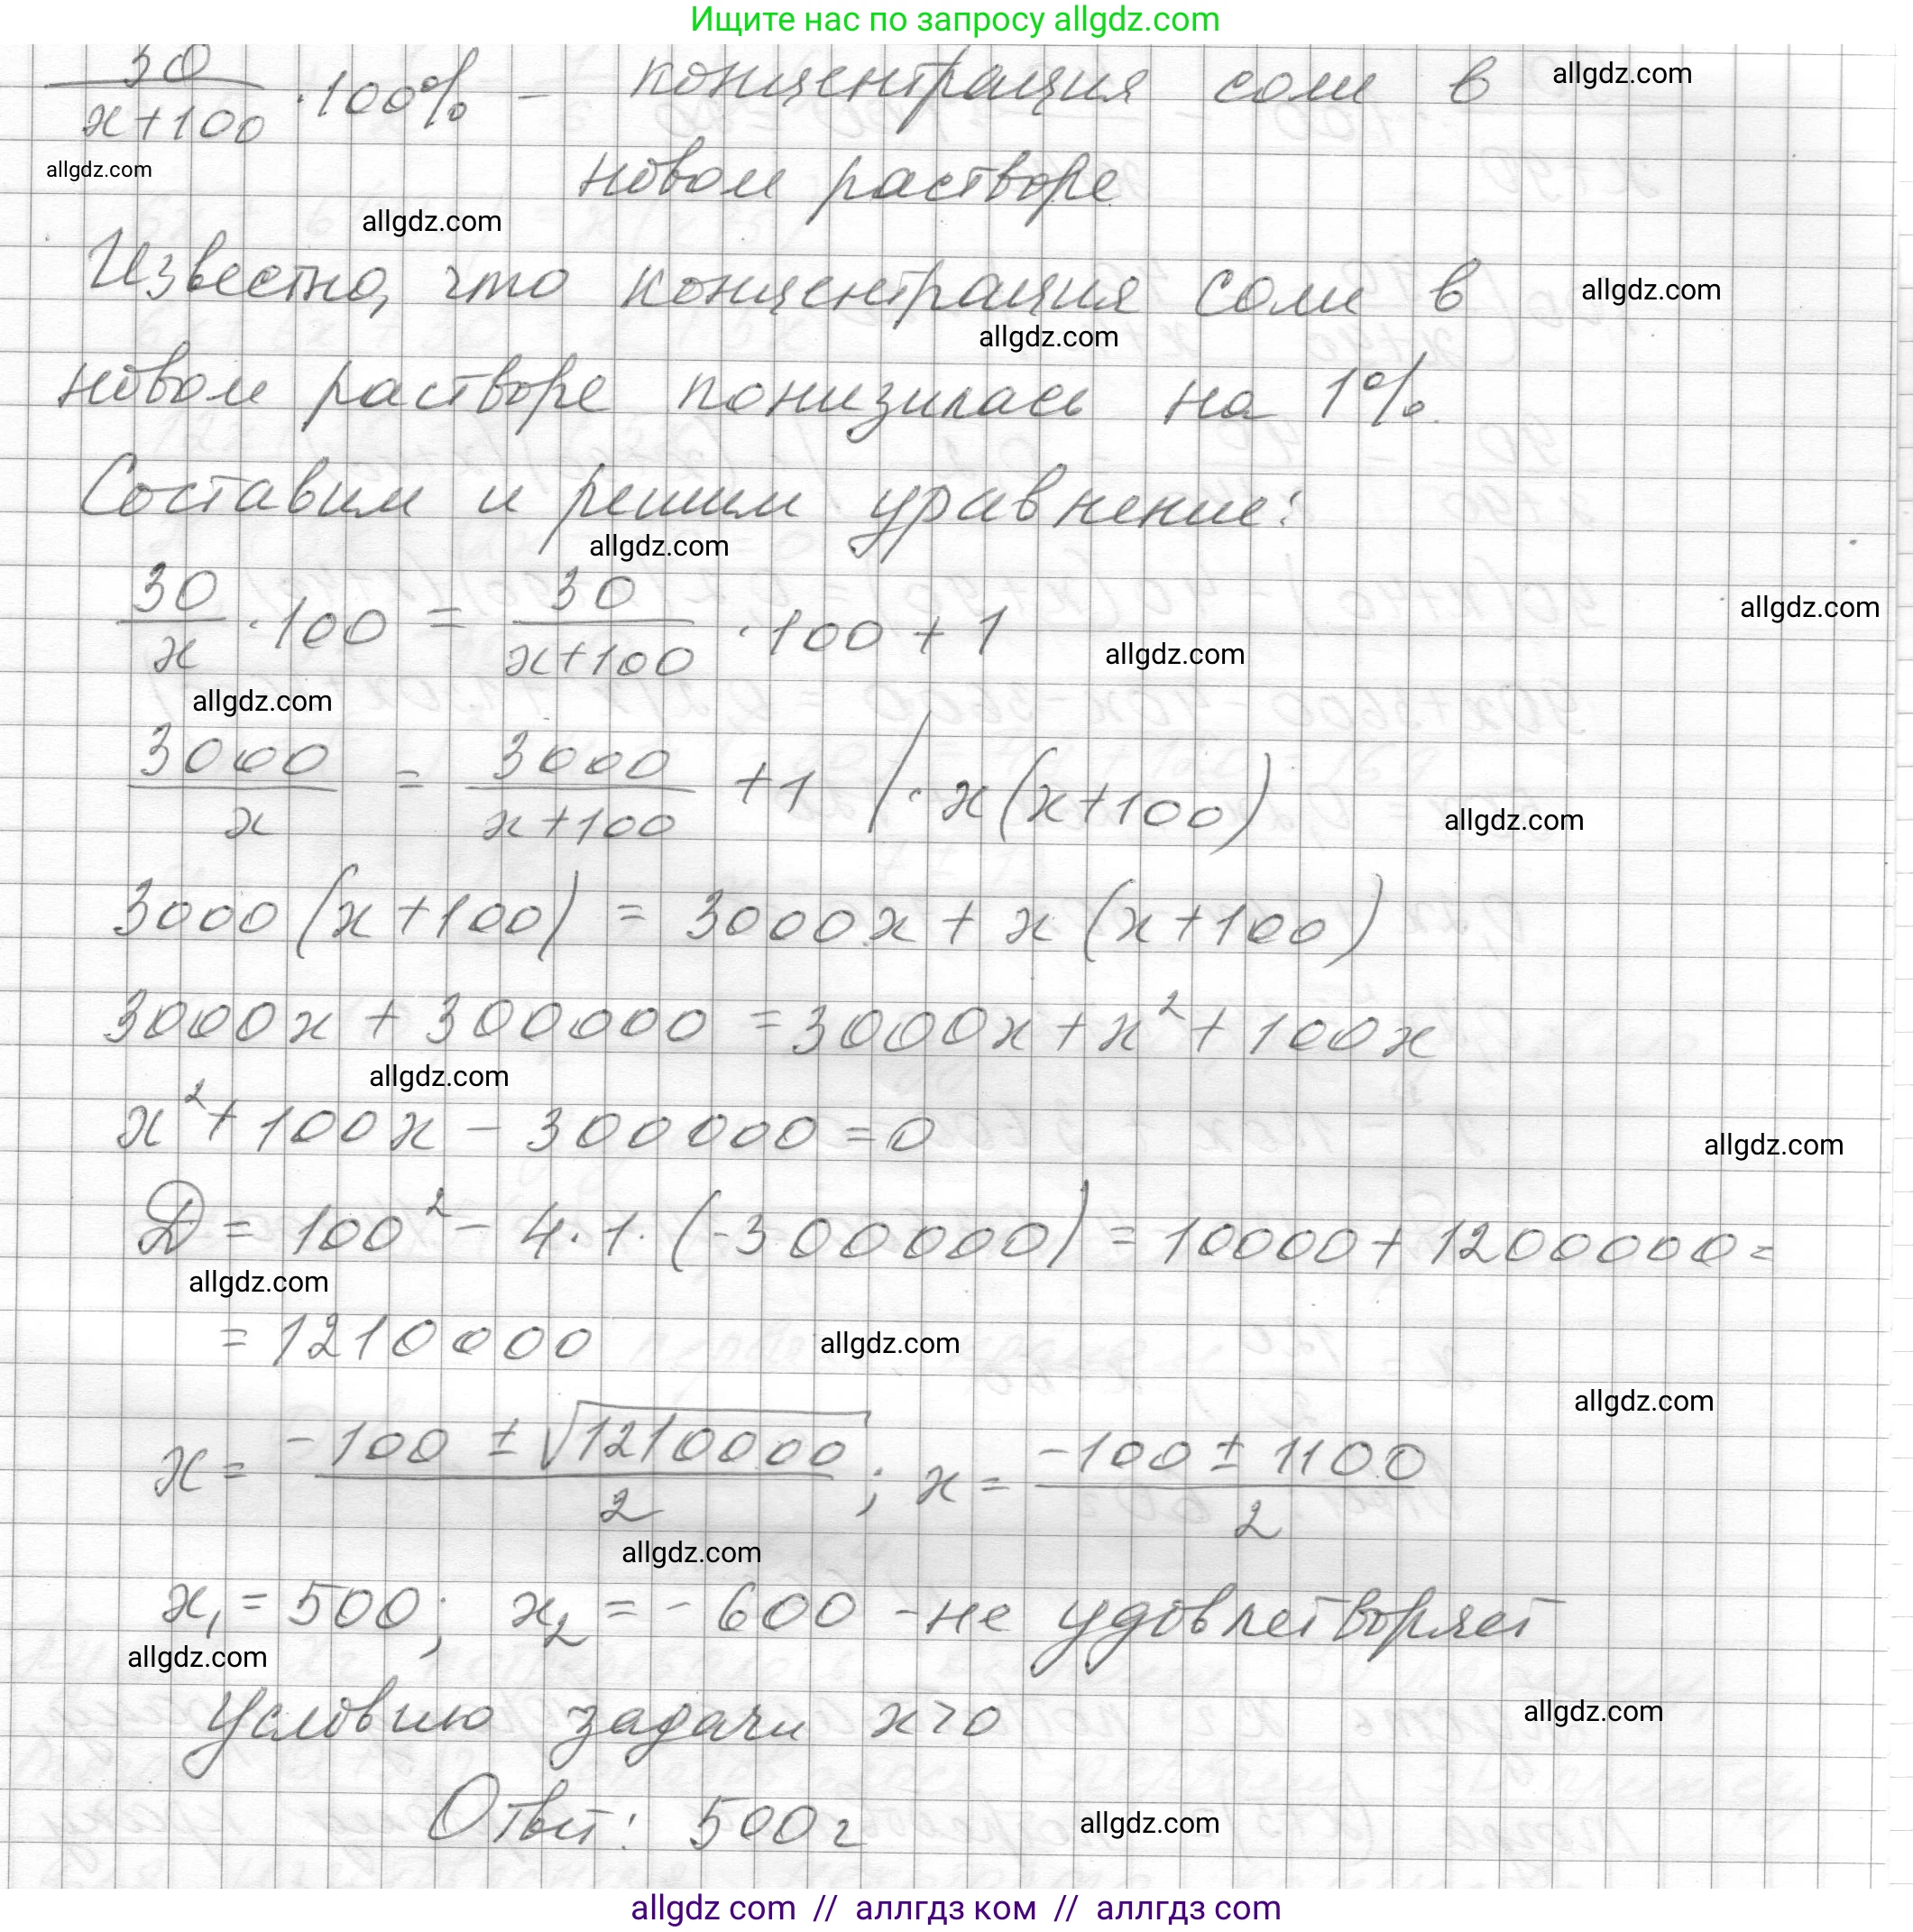 Ищите нас по запросу allgdz.com
30/(x+100) · 100% – концентрация соли в allgdz.com
allgdz.com новом растворе
allgdz.com
Известно, что концентрация соли в allgdz.com
allgdz.com
новом растворе понизилась на 1%.
Составим и решим уравнение:
allgdz.com
30/x · 100 = 30/(x+100) · 100 + 1 allgdz.com allgdz.com
allgdz.com
3000/x = 3000/(x+100) + 1 | · x(x+100) allgdz.com
3000(x+100) = 3000x + x(x+100)
3000x + 300000 = 3000x + x² + 100x
allgdz.com
x² + 100x – 300000 = 0 allgdz.com
D = 100² – 4·1·(-300000) = 10000 + 1200000 =
allgdz.com
= 1210000 allgdz.com
allgdz.com
x = (-100 ± √1210000)/2 ; x = (-100 ± 1100)/2
allgdz.com
x₁ = 500; x₂ = -600 – не удовлетворяет
allgdz.com
условию задачи x>0 allgdz.com
Ответ: 500г allgdz.com
allgdz com // аллгдз ком // аллгдз com